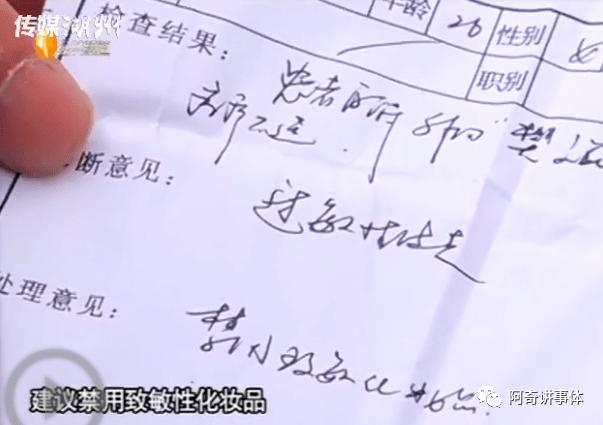 传媒湖州
年龄 26 性别 女
职别
检查结果: 患者
断意见: 过敏性皮炎
处理意见: 禁用致敏化妆品.
建议禁用致敏性化妆品
阿奇讲事体